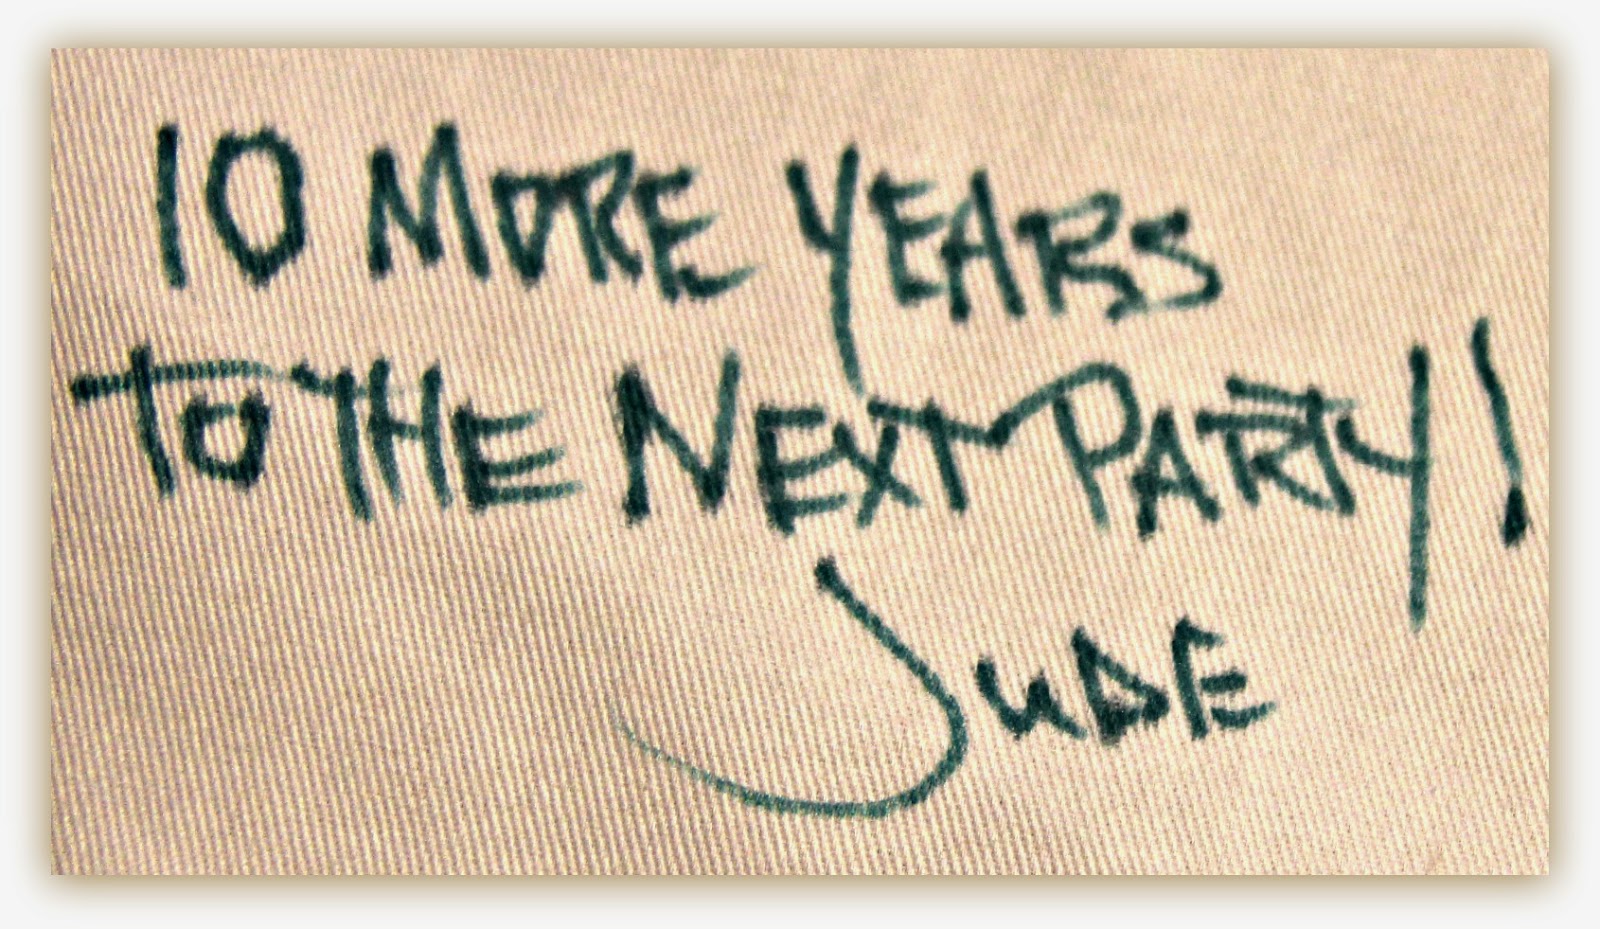 10 MORE YEARS
TO THE NEXT PARTY!
JUDE